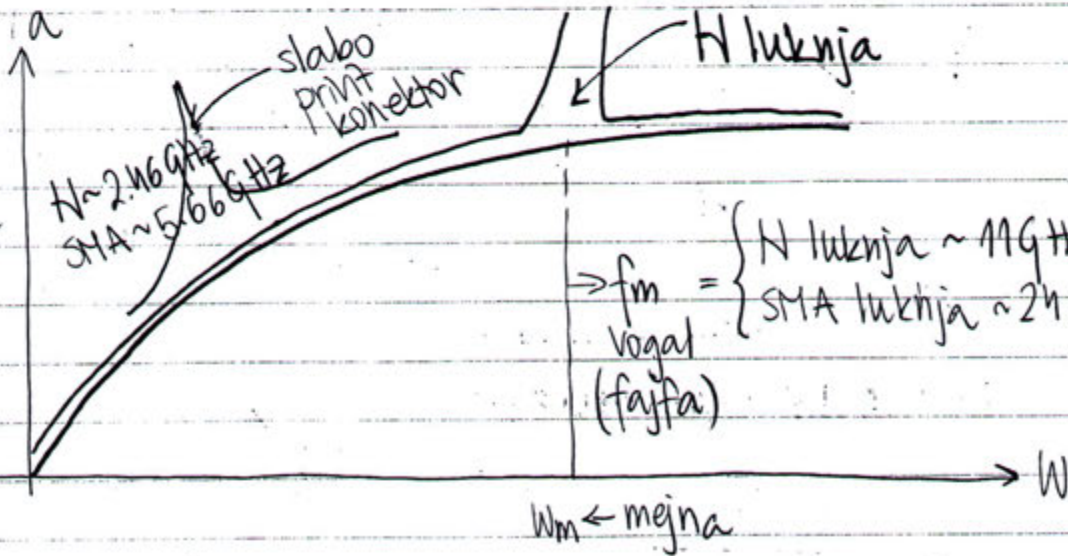 a
slabo
print
konektor
N luknja
N~2.46GHz
SMA~5.66GHz
⇒ fm = { N luknja ~ 11GH
SMA luknja ~ 24
vogal
(fajfa)
W
Wm ← mejna